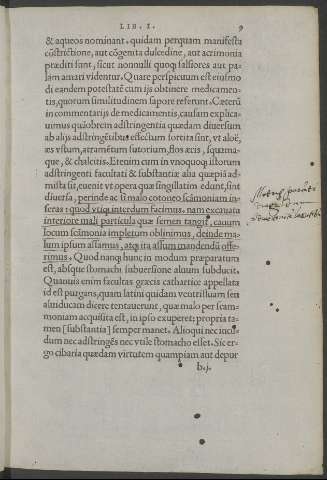 LIB. I. 9
& aqueos nominant. quidam perquam manifesta
cõstrictiõe, aut cõgenita dulcedine, aut acrimonia
præditi sunt, sicut nonnulli quoq; salsiores aut pa-
lam amari videntur. Quare perspicuum est eiusmo
di eandem potestatẽ cum ijs obtinere medicamen-
tis, quorum similitudinem sapore referunt. Cæterũ
in commentarijs de medicamentis, causam explica-
uimus quiobrem adstringentia quædam diuersum
ab alijs adstringẽtibus effectum sortita sint, vt aloë,
æs vstum, atramẽtum sutorium, flos æris, squama-
que, & chalcitis. Etenim cum in vnoquoq; istorum
adstringenti facultati & substantiæ alia quæpiã ad-
mista sit, euenit vt opera quæ singillatim edunt, sint
diuersa, perinde ac si malo cotoneo scãmoniam in-
seras: quod vtiq; interdum facimus. nam excauata
interiore mali particula quæ semen tangit, cauum
locum scãmonia impletum oblinimus, deinde ma-
lum ipsum assamus, atq; ita assum mandendũ offe-
rimus. Quod nanq; hunc in modum præparatum
est, absque stomachi subuersione aluum subducit.
Quanuis enim facultas græcis cathartice appellata
id est purgans, quam latini quidam ventrifluam seu
alniducam dicere tentauerunt, quæ malo per scam-
moniam acquisita est, in ipso exuperet: propria ta-
men [substantia] semper manet. Alioqui nec incu-
dum nec adstringẽs nec vtile stomacho esset. Sic er-
go cibaria quædam virtutem quampiam aut depur
b.j.